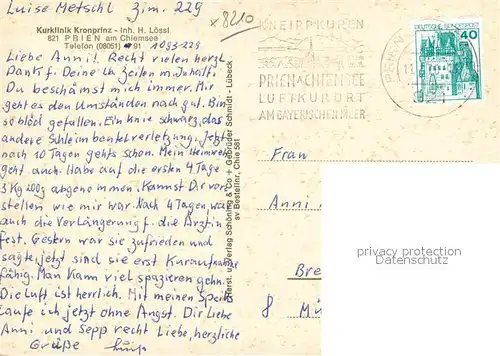 Luise Metschl Zim. 229
x8210
Kurklinik Kronprinz - Inh. H. Lössl
821 PRIEN am Chiemsee
Telefon (08051) 1093-229
Liebe Anni! Recht vielen herzl.
Dank f. Deine lb. Zeilen m. Inhalt!
Du beschämst mich immer. Mir
geht es den Umständen nach gut. Bin
so blöd gefallen. Ein Knie schwarz, das
andere Schleimbeutelverletzung. Jetzt
nach 10 Tagen gehts schon. Mein Heimweh
geht auch. Habe auf die ersten 4 Tage
3 Kg 200g abgenommen. Kannst Dir vor-
stellen wie mir war. Nach 4 Tagen, war
auch die Verlängerung f. die Ärztin
fest. Gestern war sie zufrieden und
sagte, jetzt sind sie erst Kuraufnahme
fähig. Man kann viel spazieren gehn.
Die Luft ist herrlich. Mit meinen
laufe ich jetzt ohne Angst. Dir Liebe
Anni und Sepp recht Liebe, herzliche
Grüße
Herst. u. Verlag Schöning & Co + Gebrüder Schmidt - Lübeck
sv Bestellnr. Chie 581
KNEIPPKUREN
PRIEN A CHIEMSEE
LUFTKURORT
AM BAYERISCHEN MEER
PRIEN
DEUTSCHE BUNDESPOST
40
Frau
Anni
Bre
8 Mü
privacy protection
Datenschutz